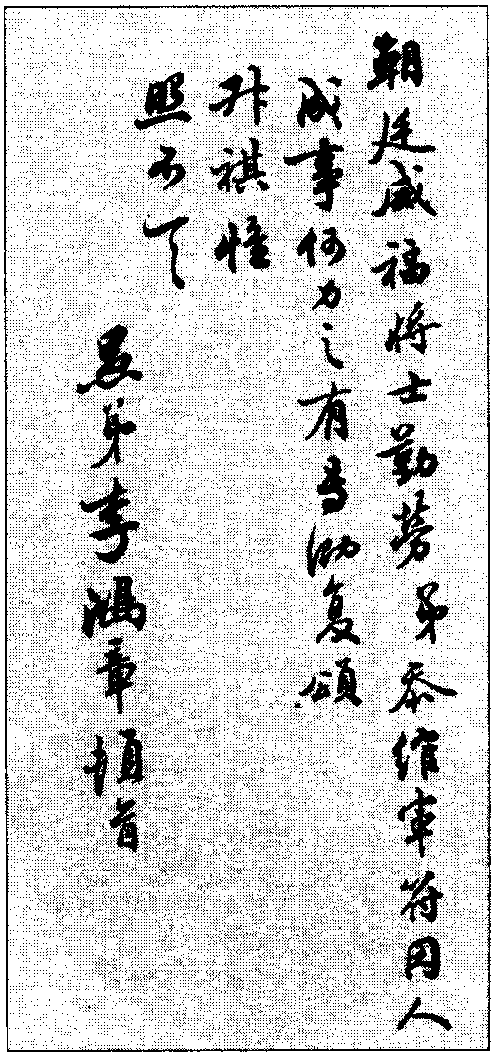 朝廷威福將士勤勞弟忝綰軍符因人
成事何力之有專泐復頌
升祺惟
照不一
愚弟李鴻章頓首